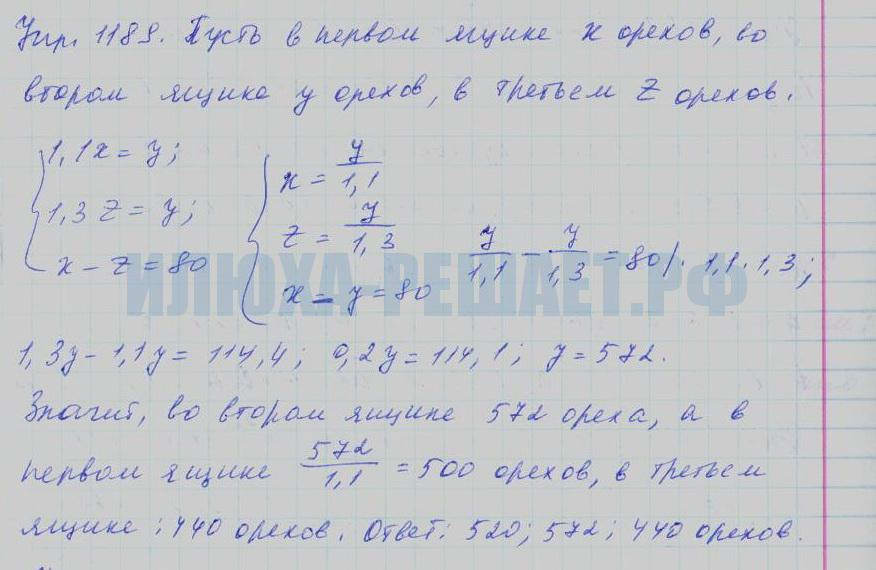 Упр. 1189. Пусть в первом ящике x орехов, во
втором ящике y орехов, в третьем z орехов.
1,1x = y;
1,3z = y;
x - z = 80
x = y/1,1
z = y/1,3
x - y = 80
y/1,1 - y/1,3 = 80 |· 1,1 · 1,3;
ИЛЮХА-РЕШАЕТ.РФ
1,3y - 1,1y = 114,4; 0,2y = 114,1; y = 572.
Значит, во втором ящике 572 ореха, а в
первом ящике 572/1,1 = 500 орехов, в третьем
ящике: 440 орехов. Ответ: 520; 572; 440 орехов.